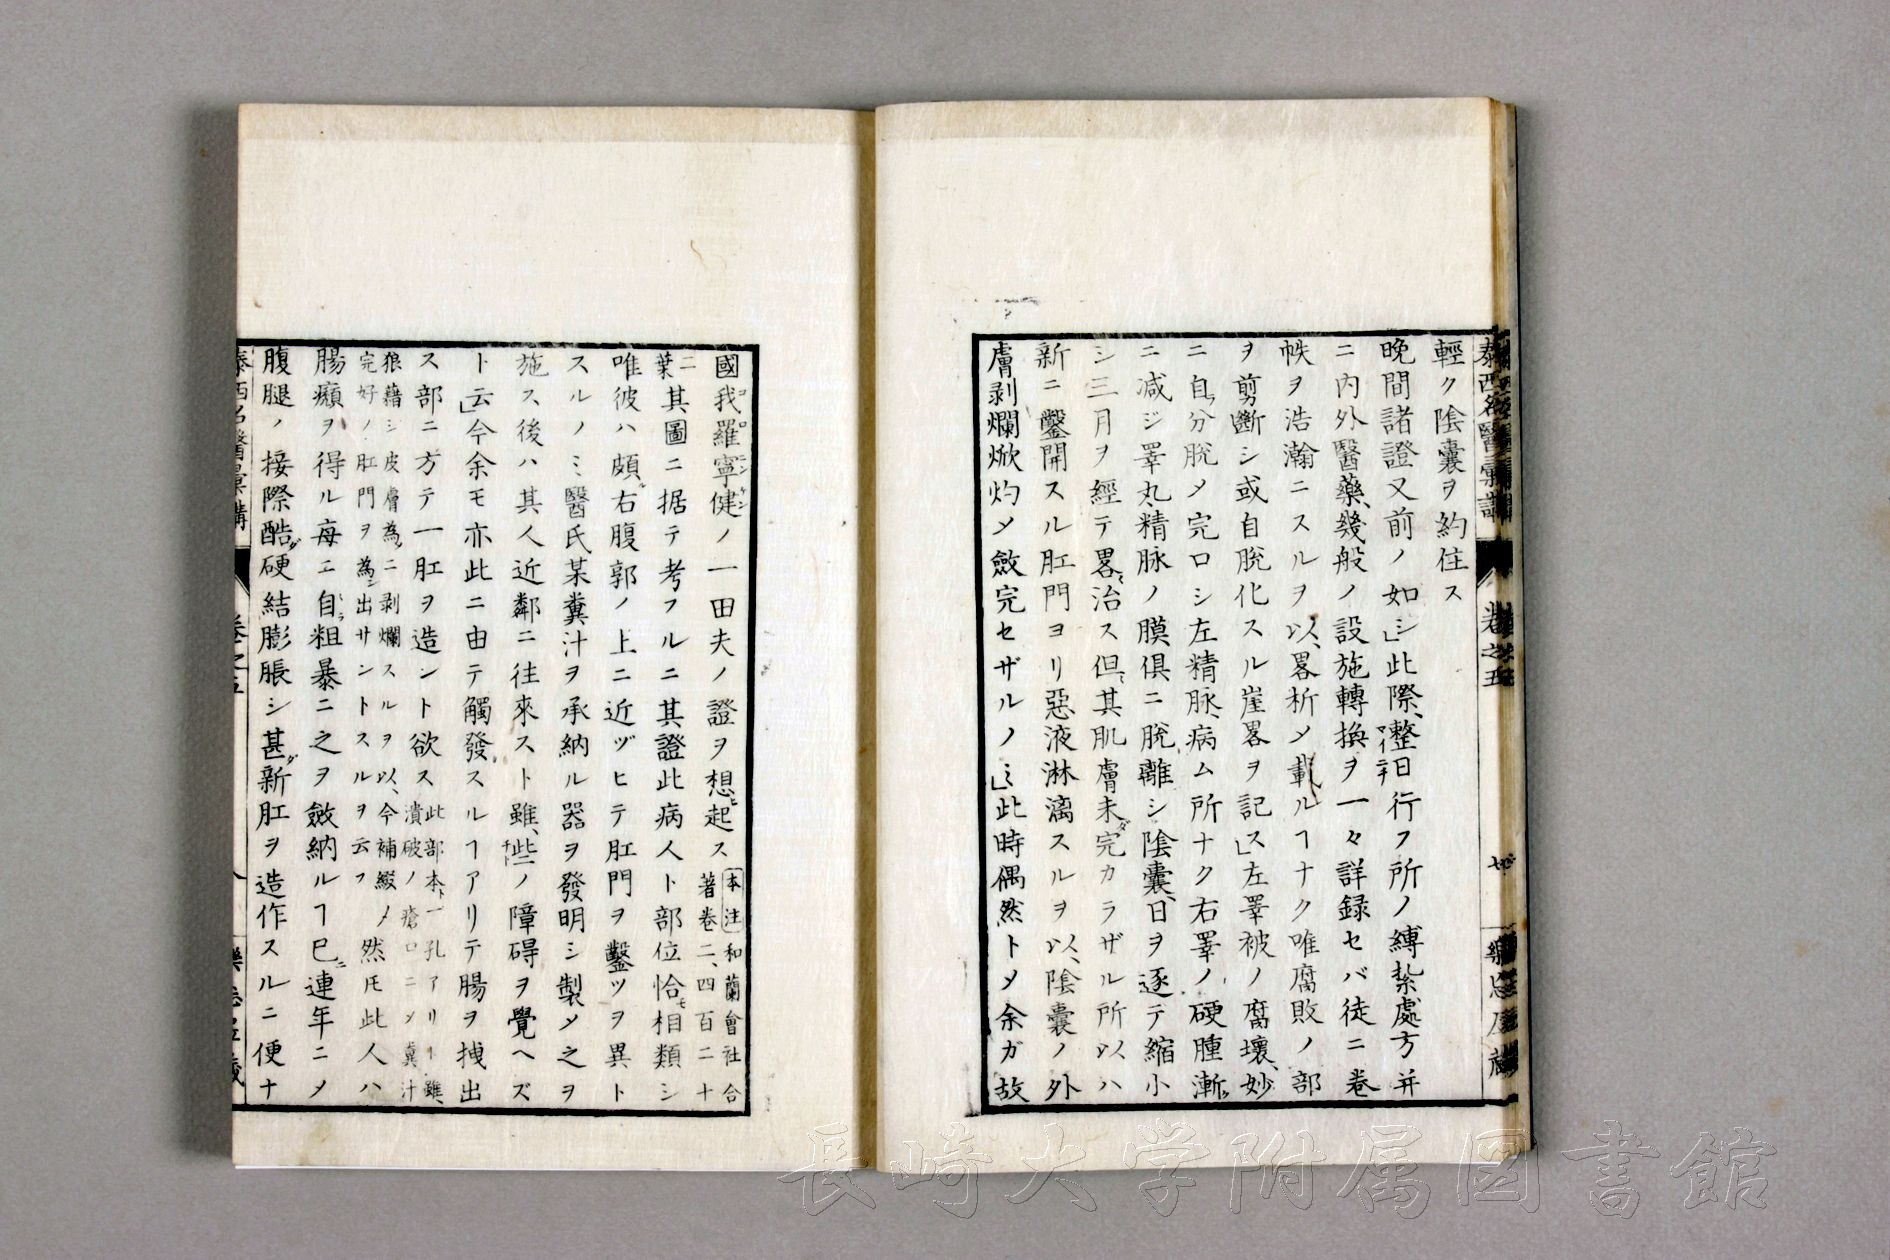 泰西名醫彙講
卷之五
輕ク陰囊ヲ約住ス
晩間諸證又前ノ如シ」此際、整日行フ所ノ縛紮處方并
ニ内外醫藥、幾般ノ設施轉換ヲ一々詳録セバ徒ニ卷
帙ヲ浩瀚ニスルヲ以、畧析メ載ルヿナク唯腐敗ノ部
ヲ剪斷シ或自脱化スル崖畧ヲ記ス」左睪被ノ腐壞、妙
ニ自分脱メ完口シ左精脉、病ム所ナク右睪ノ硬腫漸
ニ减ジ睪丸、精脉ノ膜俱ニ脱離シ陰囊、日ヲ逐テ縮小
シ三月ヲ經テ畧治ス但、其肌膚未完カラザル所以ハ
新ニ鑿開スル肛門ヨリ惡液淋漓スルヲ以、陰囊ノ外
膚剥爛焮灼メ斂完セザルノミ」此時偶然トメ余ガ故
國我羅寧健ノ一田夫ノ證ヲ想起ス
本注 和蘭會社合
著卷二、四百二十
二葉
其圖ニ据テ考フルニ其證此病人ト部位恰相類シ
唯彼ハ頗右腹郭ノ上ニ近ヅヒテ肛門ヲ鑿ツヲ異ト
スルノミ醫氏某糞汁ヲ承納ル器ヲ發明シ製メ之ヲ
施ス後ハ其人近鄰ニ往來スト雖、些ノ障碍ヲ覺ヘズ
ト云」今余モ亦此ニ由テ觸發スルヿアリテ腸ヲ拽出
ス部ニ方テ一肛ヲ造ント欲ス
此部本一孔アリト雖、
潰破ノ瘡口ニメ糞汁
狼藉シ皮膚為ニ剥爛スルヲ以、今補綴メ
完好ノ肛門ヲ為シ出サントスルヲ云フ
然𪜈此人ハ
腸癩ヲ得ル毎ニ自粗暴ニ之ヲ斂納ルヿ已連年ニメ
腹腿ノ接際酷硬結膨脹シ甚新肛ヲ造作スルニ便ナ
泰西名醫彙講
卷之五
八
長崎大学附属図書館